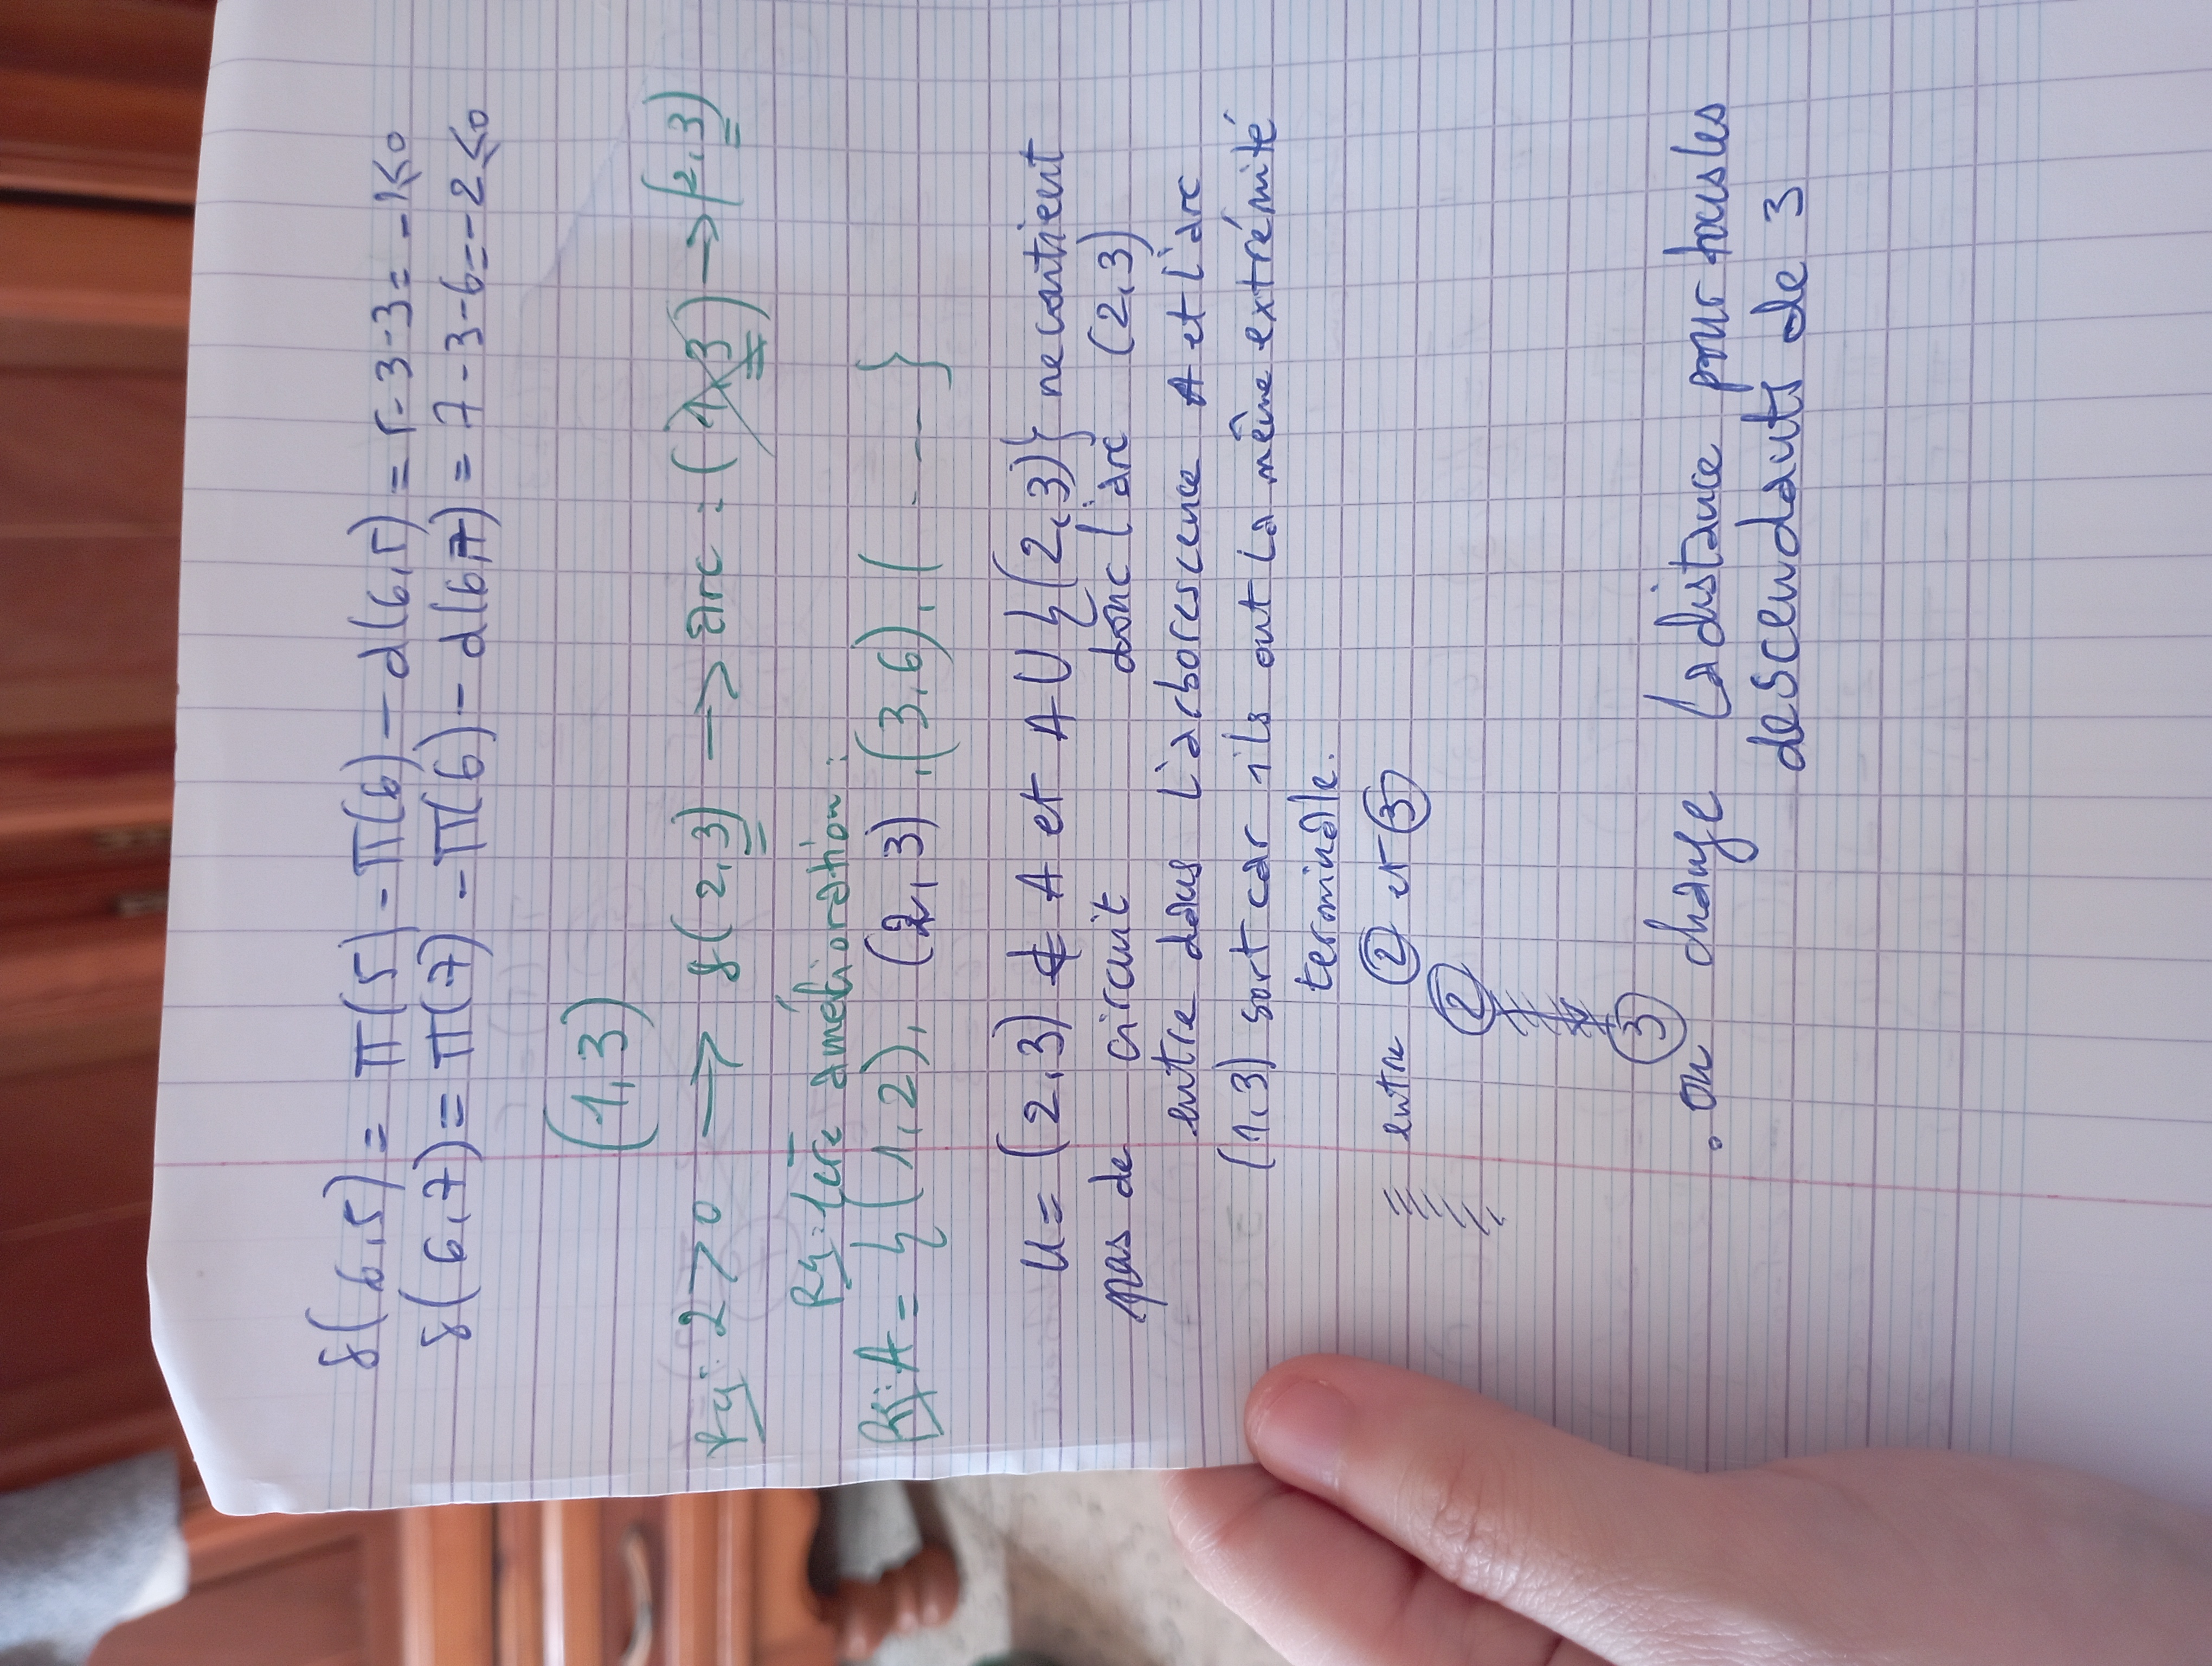 δ(6,5) = π(5) - π(6) - d(6,5) = 5-3-3 = -1 ≤ 0
δ(6,7) = π(7) - π(6) - d(6,7) = 7-3-6 = -2 ≤ 0
(1,3)
Rq: 2 > 0 → δ(2,3) → arc : (1,3) → (2,3)
Rq: 1ère amélioration :
Rq: A = {(1,2), (2,3), (3,6), ( ... }
U = (2,3) ∉ A et A ∪ {(2,3)} ne contient
pas de circuit donc l'arc (2,3)
entre dans l'arborescence A et l'arc
(1,3) sort car ils ont la même extrémité
terminale.
entre ② et ③
②
③
. on change la distance pour tous les
descendants de 3